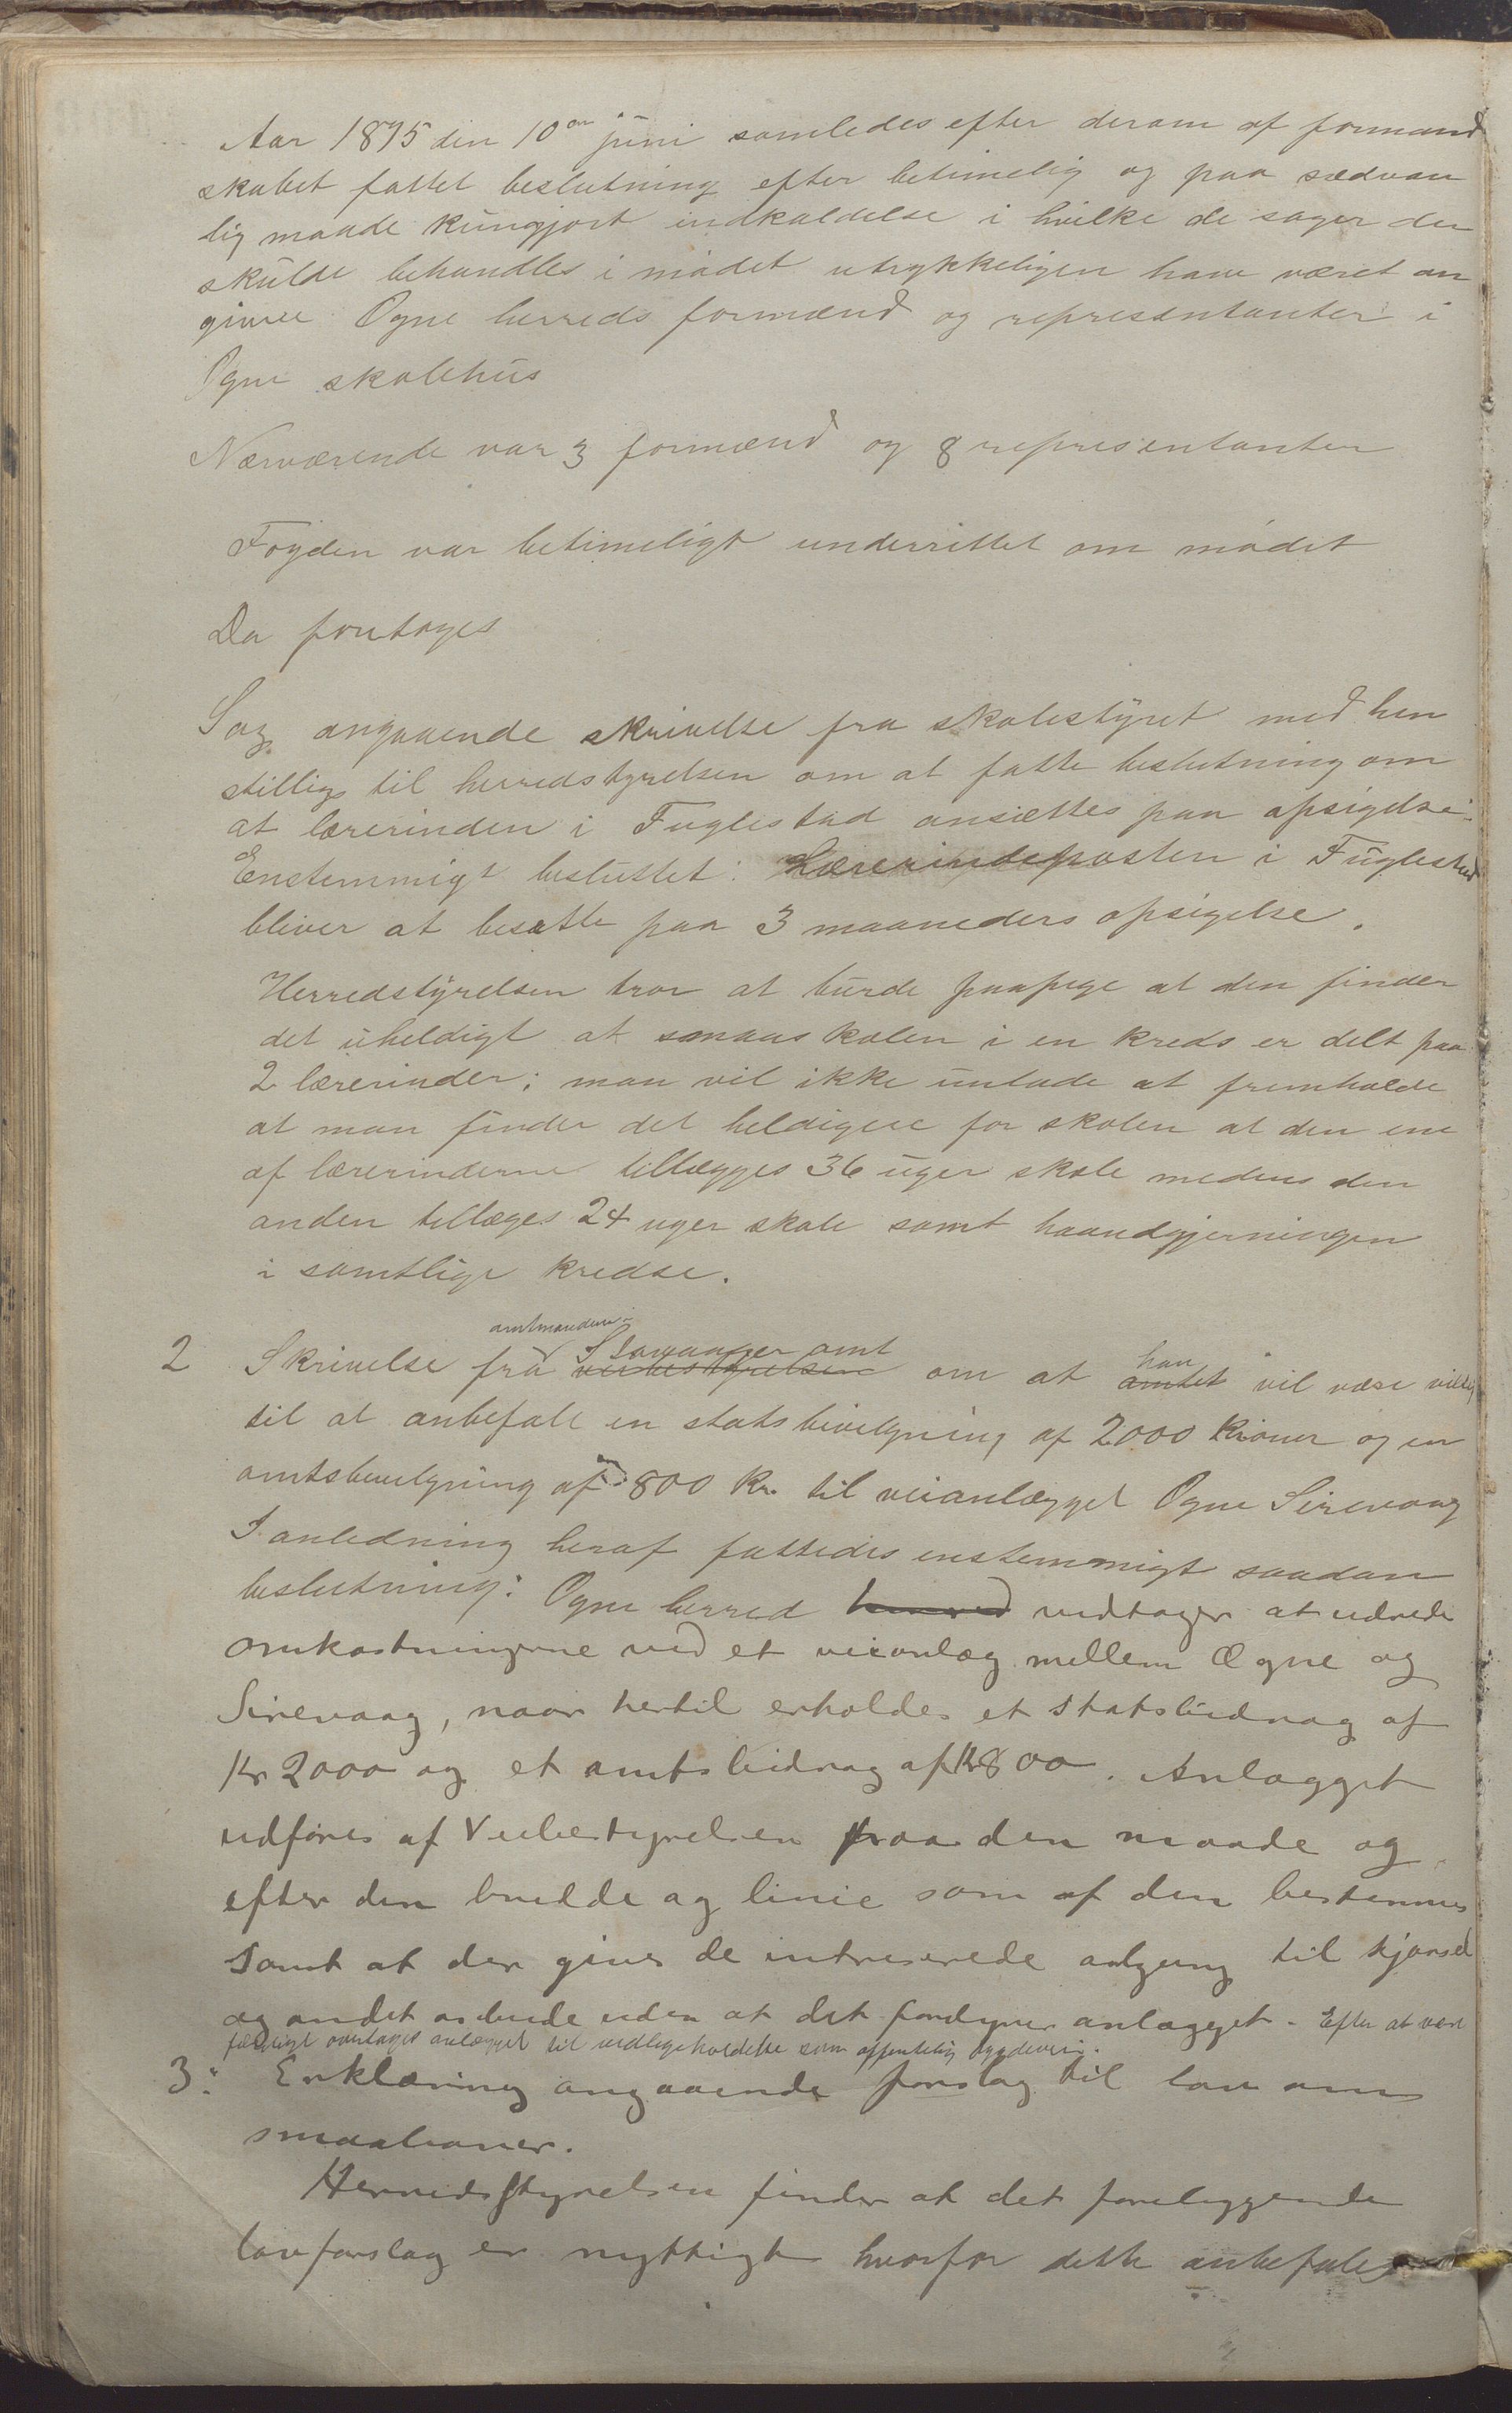 Aar 1895 den 10de juni samledes efter derom af formand
skabet fattet beslutning efter betimelig og paa sædvan
lig maade kungjort indkaldelse i hvilke de sager der
skulde behandles i mødet utrykkeligen have været an
givne Ogne herreds formænd og repræsentanter i
Ogne skolehus
Nærværende var 3 formænd og 8 representanter
Fogden var betimeligt underrettet om mødet
Da foretoges
Sag angaaende skrivelse fra skolestyret med hen
stillig til herredstyrelsen om at fatte beslutning om
at lærerinden i Fuglestad ansættes paa opsigelse:
Enstemmigt besluttet: Lærerindeposten i Fuglestad
bliver at besætte paa 3 maaneders opsigelse.
Herredstyrelsen tror at burde paapege at den finder
det uheldigt at smaaskolen i en kreds er delt paa
2 lærerinder; man vil ikke unlade at fremholde
at man finder det heldigere for skolen at den ene
af lærerinderne tillægges 36 uger skole medens den
anden tillæges 24 uger skole samt haandgjerningen
i samtlige kredse.
amtmanden i
2 Skrivelse fra Stavanger amt veibestyrelsen om at han amtet vil være villig
til at anbefale en statsbevilgning af 2000 kroner og en
amtsbevilgning af 800 kr. til veianlægget Ogne Sirevaag
I anledning heraf fattedes enstemmigt saadan
beslutning: Ogne herred herred vedtager at udrede
omkostningerne ved et veianlæg mellem Ogne og
Sirevaag, naar hertil erholdes et statsbidrag af
Kr 2000 og et amtsbidrag af Kr 800. Anlægget
udføres af Veibestyrelsen paa den maade og
efter den bredde og linie som af den bestemmes
samt at der gives de intreserede adgang til kjørsel
og andet arbeide uden at det fordyrer anlægget. Efter at være
færdigt overtages anlægget til vedligeholdelse som offentelig bygdevei.
3: Erklæring angaaende forslag til lov om
smaabaner.
Herredsstyrelsen finder at det foreliggende
lovforslag er nyttigt hvorfor dette anbefales